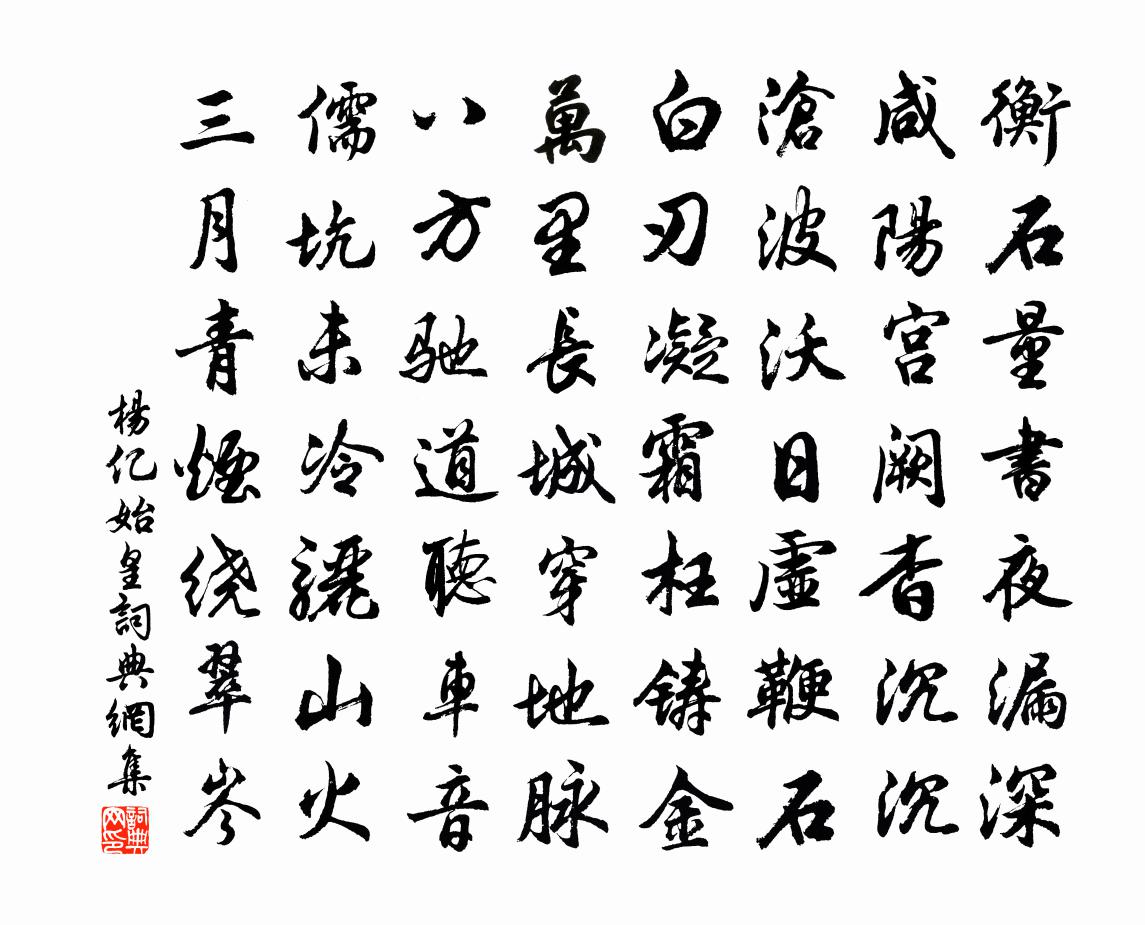 衡石量書夜漏深
咸陽宮闕杳沉沉
滄波沃日虛鞭石
白刃凝霜枉鑄金
萬里長城穿地脉
八方馳道聽車音
儒坑未冷驪山火
三月青煙繞翠岑
楊亿始皇詞典網集
詞典网印